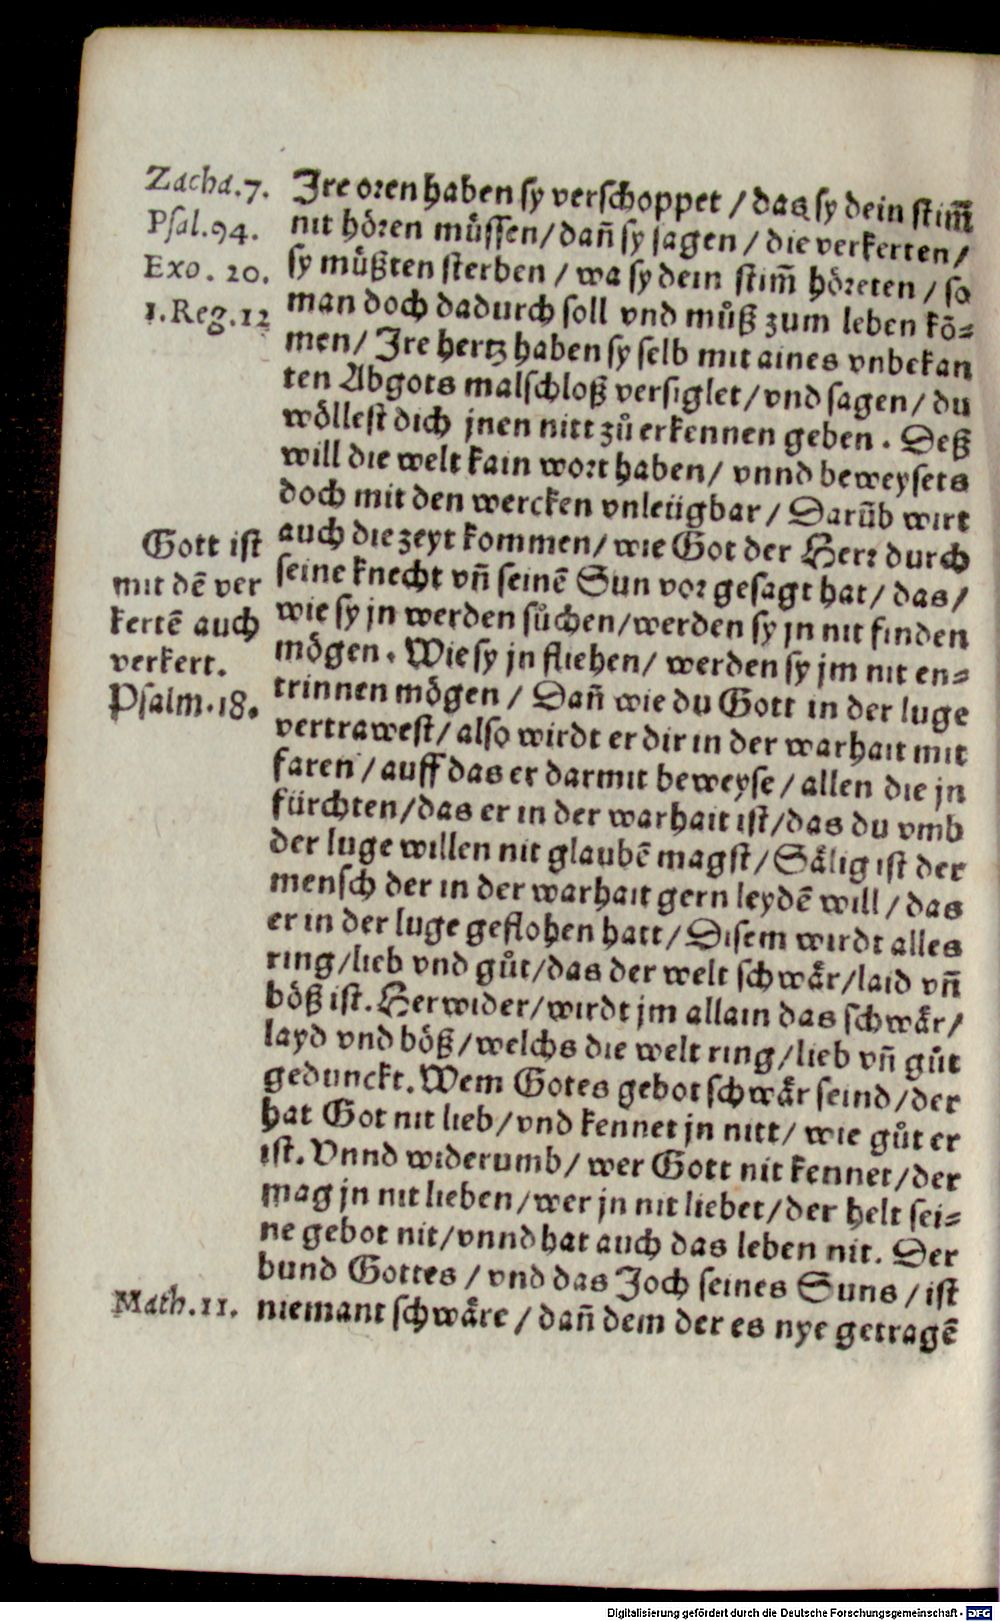 Zacha.7.
Psal.94.
Exo. 20.
1.Reg.12
Ire oren haben sy verschoppet / das sy dein stim̃
nit hören müssen/ dañ sy sagen / die verkerten /
sy müßten sterben / wa sy dein stim̃ höreten / so
man doch dadurch soll vnd můß zum leben kō-
men/ Ire hertz haben sy selb mit aines vnbekan
ten Abgots malschloß versiglet/ vnd sagen/ du
wöllest dich jnen nitt zů erkennen geben. Deß
will die welt kain wort haben/ vnnd beweysets
doch mit den wercken vnleügbar / Darūb wirt
auch die zeyt kommen/ wie Got der Herr durch
seine knecht vñ seinē Sun vor gesagt hat/ das/
wie sy jn werden sůchen/werden sy jn nit finden
mögen. Wie sy jn fliehen/ werden sy jm nit en-
trinnen mögen / Dañ wie du Gott in der luge
vertrawest/ also wirdt er dir in der warhait mit
faren / auff das er darmit beweyse / allen die jn
fürchten/das er in der warhait ist/das du vmb
der luge willen nit glaubē magst/ Sålig ist der
mensch der in der warhait gern leydē will / das
er in der luge geflohen hatt/ Disem wirdt alles
ring/lieb vnd gůt/das der welt schwår/laid vñ
böß ist. Herwider/wirdt jm allain das schwår/
layd vnd böß/welchs die welt ring/lieb vñ gůt
gedunckt. Wem Gotes gebot schwår seind/der
hat Got nit lieb/vnd kennet jn nitt/ wie gůt er
ist. Vnnd widerumb/ wer Gott nit kennet/der
mag jn nit lieben/wer jn nit liebet/der helt sei-
ne gebot nit/vnnd hat auch das leben nit. Der
bund Gottes / vnd das Joch seines Suns / ist
niemant schwåre / dañ dem der es nye getragē
Gott ist
mit dē ver
kertē auch
verkert.
Psalm.18.
Math.11.
Digitalisierung gefördert durch die Deutsche Forschungsgemeinschaft - DFG